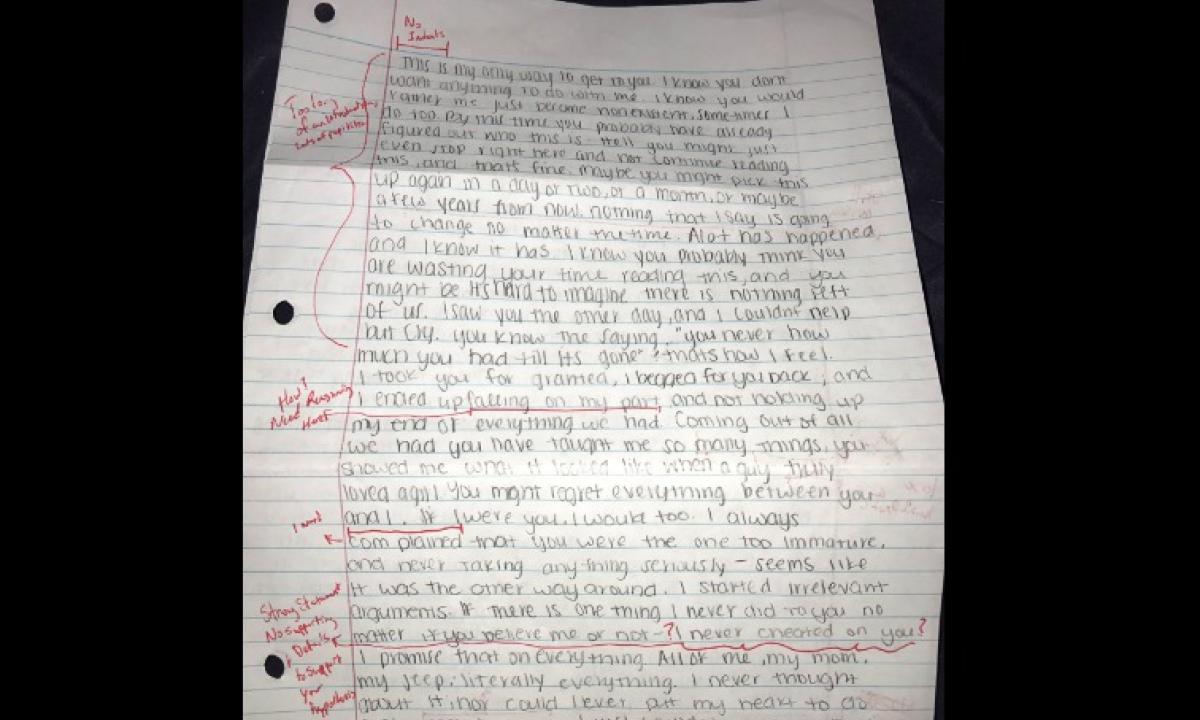 No
Indents
This is my only way to get to you. I know you don't
want anything to do with me. I know you would
rather me just become nonexistent. Sometimes I
do too. By this time you probably have already
figured out who this is. Hell you might just
even stop right here and not continue reading
this, and thats fine. maybe you might pick this
up again in a day or two, or a month, or maybe
a few years from now. nothing that I say is going
to change no matter the time. Alot has happened
and I know it has. I know you probably think you
are wasting your time reading this, and you
might be. It's hard to imagine there is nothing left
of "us". I saw you the other day, and I couldn't help
but cry. you know the saying, "you never how
much you had till its gone", thats how I feel.
I took you for granted, I begged for you back, and
I ended up falling on my part, and not holding up
my end of everything we had. Coming out of all
we had you have taught me so many things, you
showed me what it looked like when a guy truly
loved a girl. You might regret everything between you
and I. If I were you, I would too. I always
complained that you were the one too immature,
and never taking anything seriously - seems like
it was the other way around. I started irrelevant
arguments. If there is one thing I never did to you no
matter if you believe me or not -? I never cheated on you?
I promise that on everything. All of me, my mom,
my jeep, literally everything. I never thought
about it, nor could I ever put my heart to do
Too long
of an introduction,
lots of repitition
How?
Need Reasoning
Here!
Strong Statement
No supporting
Details
to support
your
hypothesis